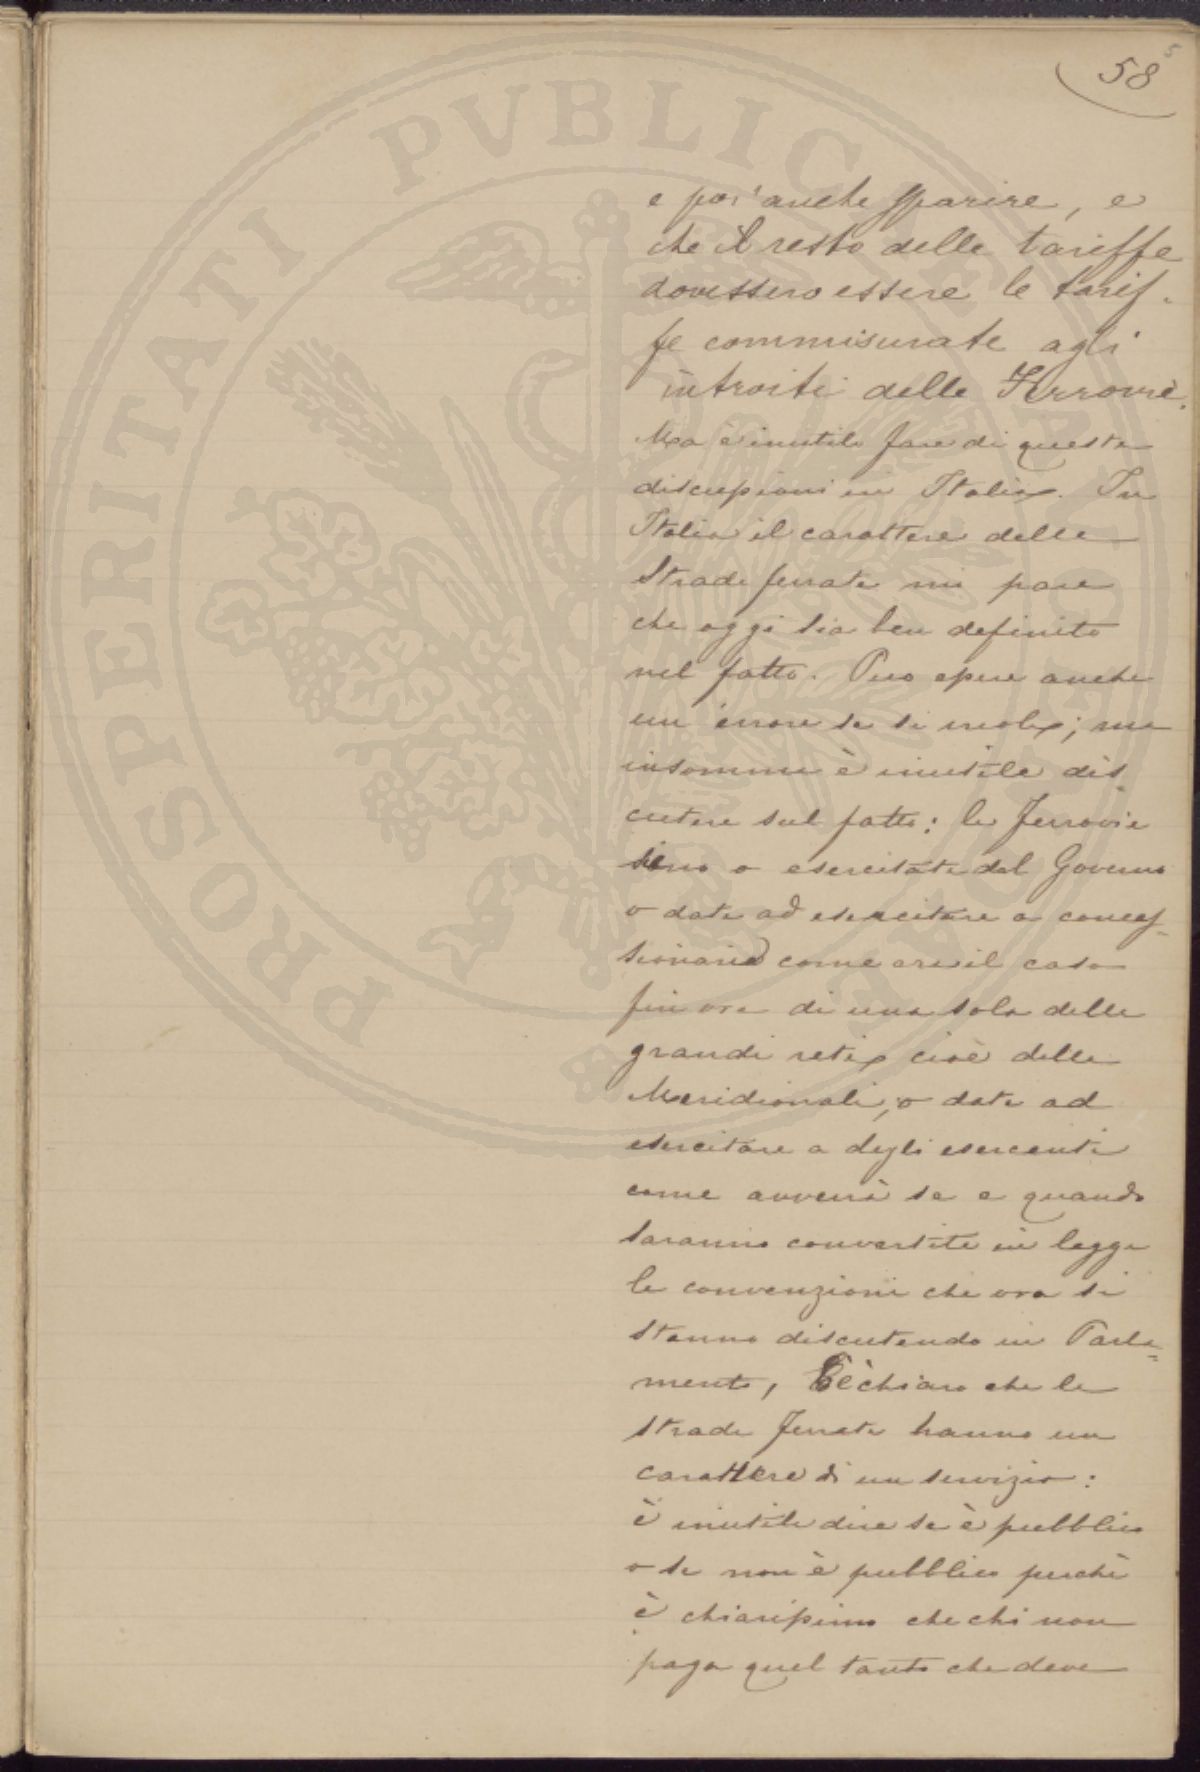 58
5
e poi anche sparire, e
che il resto delle tariffe
dovessero essere le tarif-
fe commisurate agli
introiti delle Ferrovie.
Ma è inutile fare di queste
discussioni in Italia. In
Italia il carattere delle
Strade ferrate mi pare
che oggi sia ben definito
nel fatto. Può essere anche
un errore se si vuole; ma
insomma è inutile dis
cutere sul fatto: le Ferrovie
sieno o esercitate dal Governo
o date ad esercitare a conces-
sionario come era il caso
fin ora di una sola delle
grandi reti, cioè delle
Meridionali, o date ad
esercitare a degli esercenti
come avverrà se e quando
saranno convertite in legge
le convenzioni che ora si
stanno discutendo in Parla=
mento, è chiaro che le
strade ferrate hanno un
carattere di un servizio:
è inutile dire se è pubblico
o se non è pubblico perchè
è chiarissimo che chi non
paga quel tanto che deve
PROSPERITATI PVBLICAE